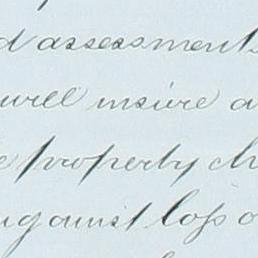 d assessments
will insure a
e property ch
against loss o